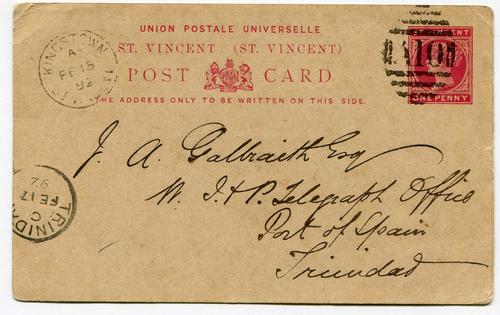 UNION POSTALE UNIVERSELLE
ST. VINCENT (ST. VINCENT)
POST CARD
THE ADDRESS ONLY TO BE WRITTEN ON THIS SIDE.
KINGSTOWN
A
FE 15
92
ONE PENNY
J. A. Galbraith Esq
W. I. & P. Telegraph Office
Port of Spain
Trinidad
TRINIDAD
C
FE 17
92